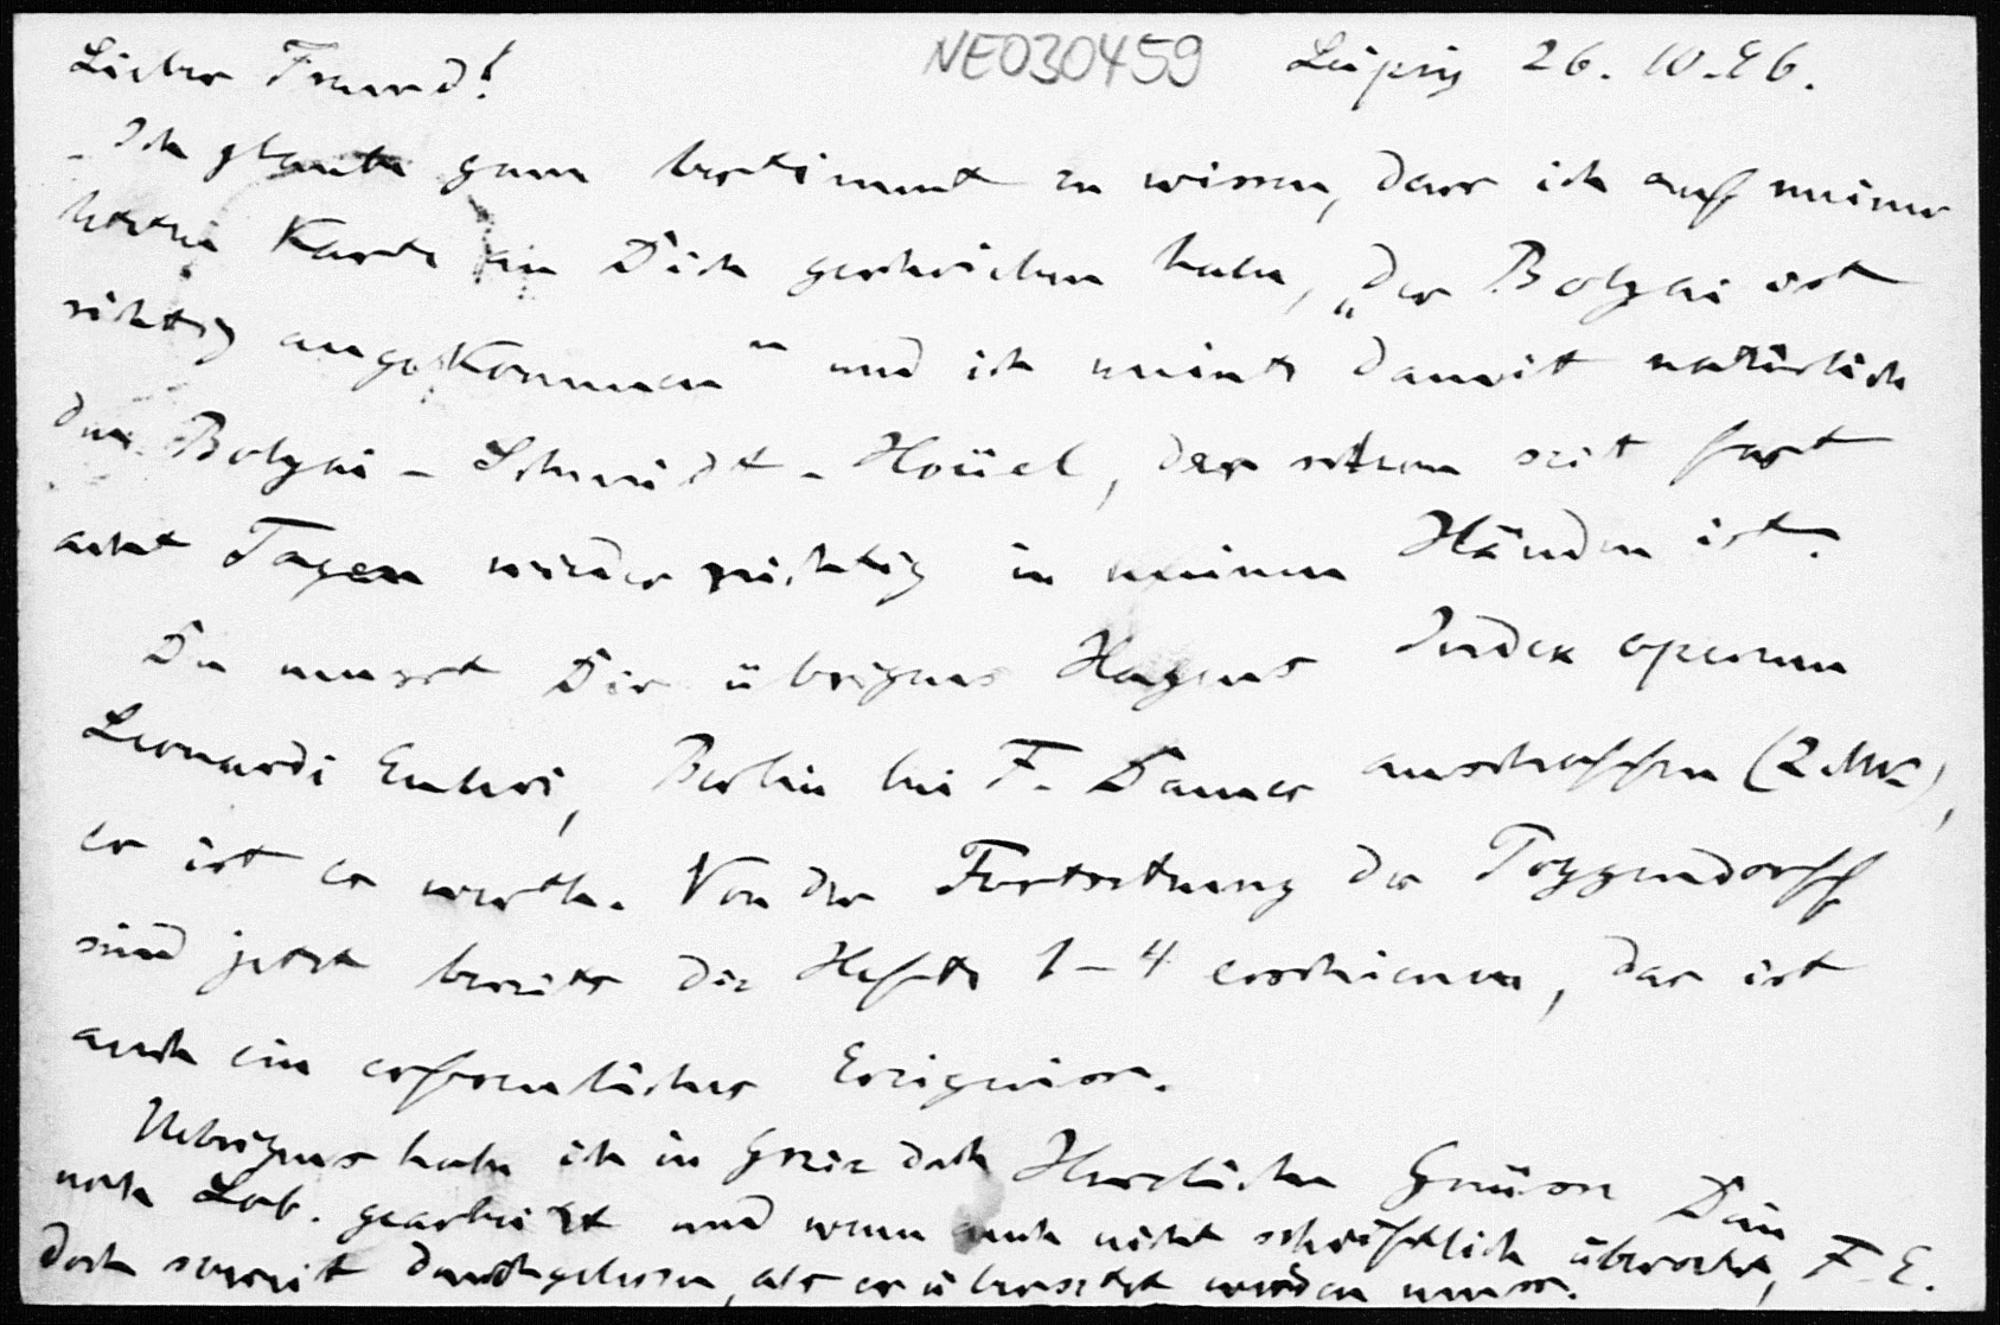 Lieber Freund! NE030459 Leipzig 26. 10. 96.
Ich glaubte ganz bestimmt zu wissen, dass ich auf meiner
letzten Karte an Dich geschrieben habe, „Der Bolyai ist
richtig angekommen“ und ich meinte damit natürlich
den Bolyai-Schmidt-Hoüel, der schon seit fast
acht Tagen wieder richtig in meinen Händen ist.
Du musst Dir übrigens Hagens Index operum
Leonardi Euleri, Berlin bei F. Dames anschaffen (2 Mk),
er ist es werth. Von der Fortsetzung des Poggendorff
sind jetzt bereits die Hefte 1-4 erschienen, das ist
auch ein erfreuliches Ereigniss.
Uebrigens habe ich in Greiz doch Herzliche Grüsse Dein
noch Lob. gearbeitet und wenn auch nicht schriftlich übersetzt, F. E.
doch soweit durchgelesen, als er übersetzt werden muss.